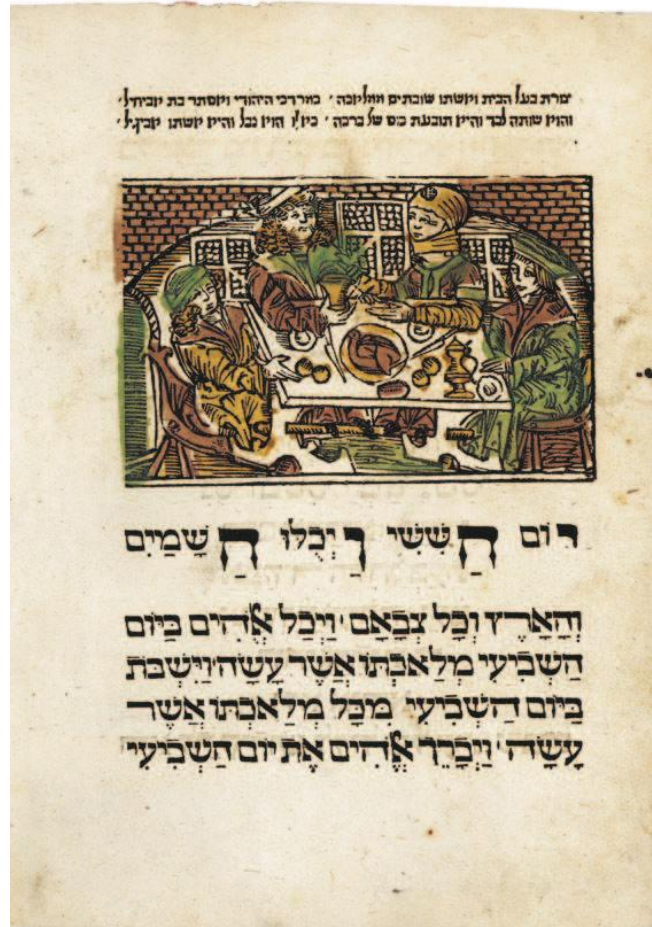 צורת בעל הבית ואשתו שובתים ממלאכה ׳ כמרדכי היהודי ואסתר בת אביחיל ׳
והוא שותה לבד והיא תובעת כוס של ברכה ׳ כאלו הוא נבל והיא אשתו אביגיל ׳
יוֹם הַשִּׁשִּׁי וַיְכֻלּוּ הַשָּׁמַיִם
וְהָאָרֶץ וְכָל צְבָאָם ׳ וַיְכַל אֱלֹהִים בַּיּוֹם
הַשְּׁבִיעִי מְלַאכְתּוֹ אֲשֶׁר עָשָׂה ׳ וַיִּשְׁבֹּת
בַּיּוֹם הַשְּׁבִיעִי מִכָּל מְלַאכְתּוֹ אֲשֶׁר
עָשָׂה ׳ וַיְבָרֶךְ אֱלֹהִים אֶת יוֹם הַשְּׁבִיעִי